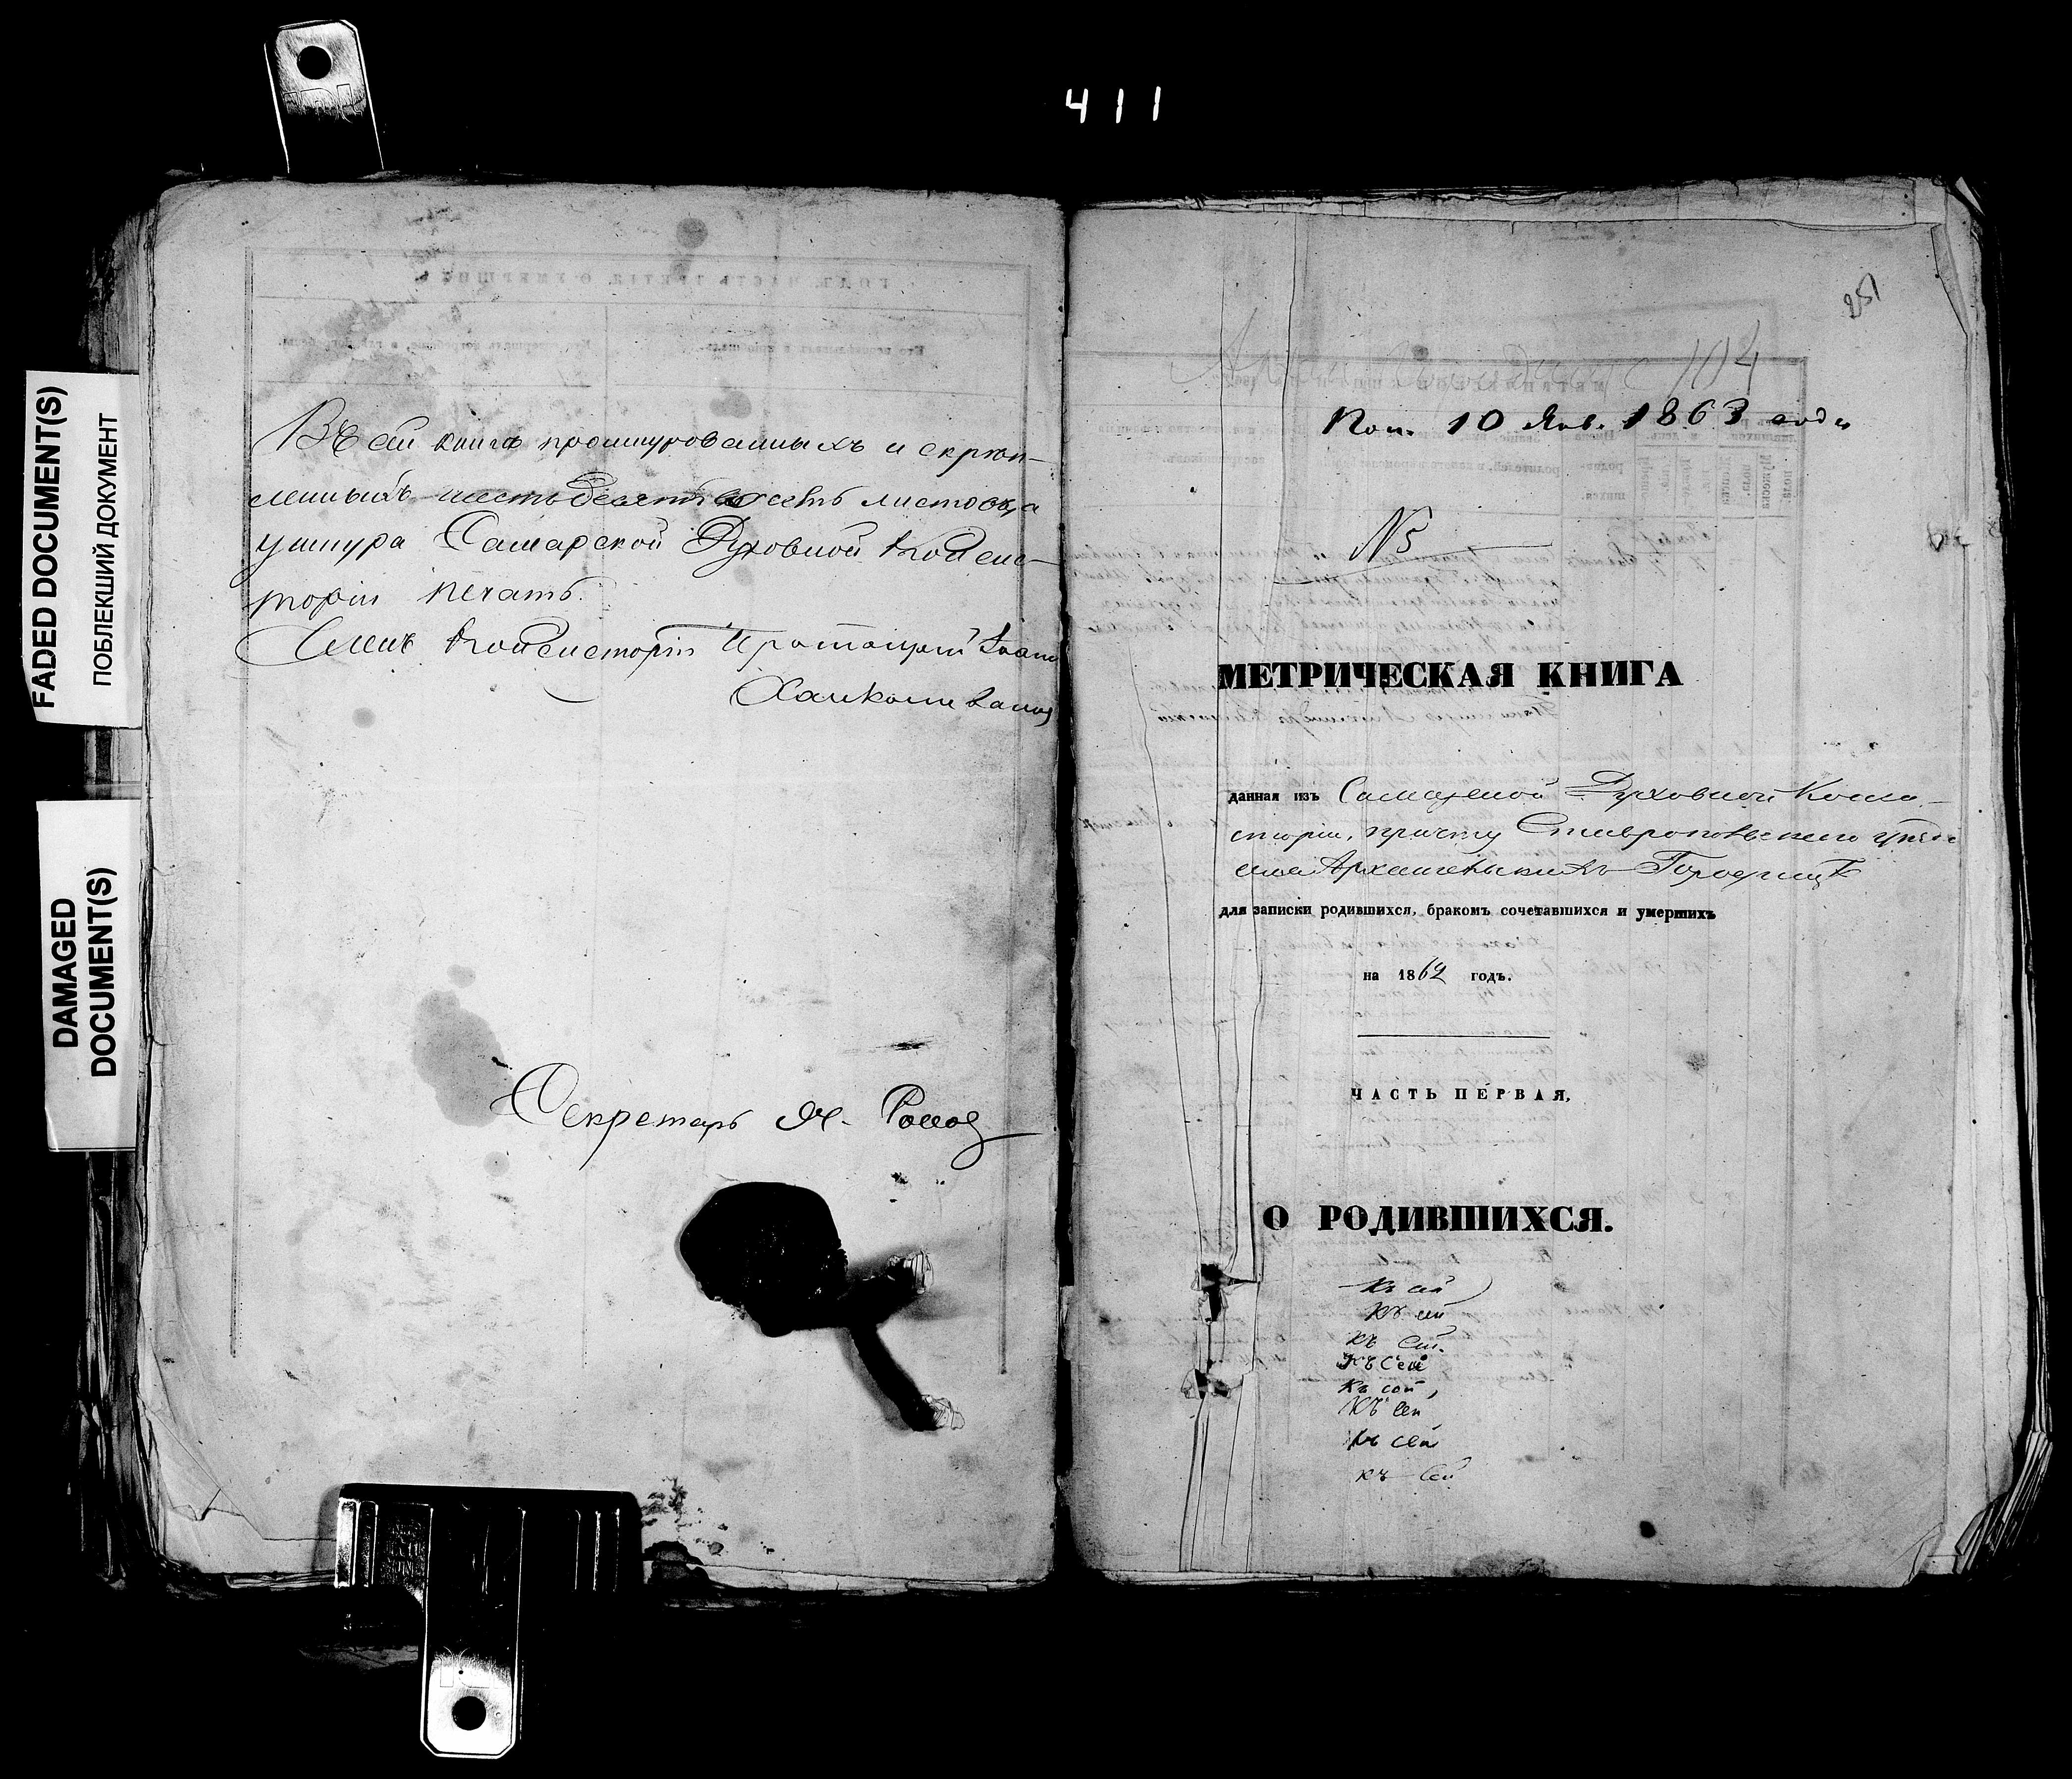 411
FADED DOCUMENT(S)
ПОБЛЕКШИЙ ДОКУМЕНТ
DAMAGED
DOCUMENT(S)
Въ сей книгѣ прошнурованныхъ и скрѣп-
ленныхъ шестьдесятъ листовъ, а
у шнура Самарской Духовной Конси-
сторіи печать.
Членъ Консисторіи Протоіерей Іоаннъ
Секретарь
251
104
Пол. 10 Янв. 1863 года
№5
МЕТРИЧЕСКАЯ КНИГА
данная изъ Самарской Духовной Конси-
сторіи, причту Ставропольскаго уѣзда
села Архангельскихъ Городищъ
для записки родившихся, бракомъ сочетавшихся и умершихъ
на 1862 годъ.
ЧАСТЬ ПЕРВАЯ,
О РОДИВШИХСЯ.
Къ сей
Къ сей
Къ сей.
Къ Сей
Къ сей,
Къ сей
Къ сей
Къ сей